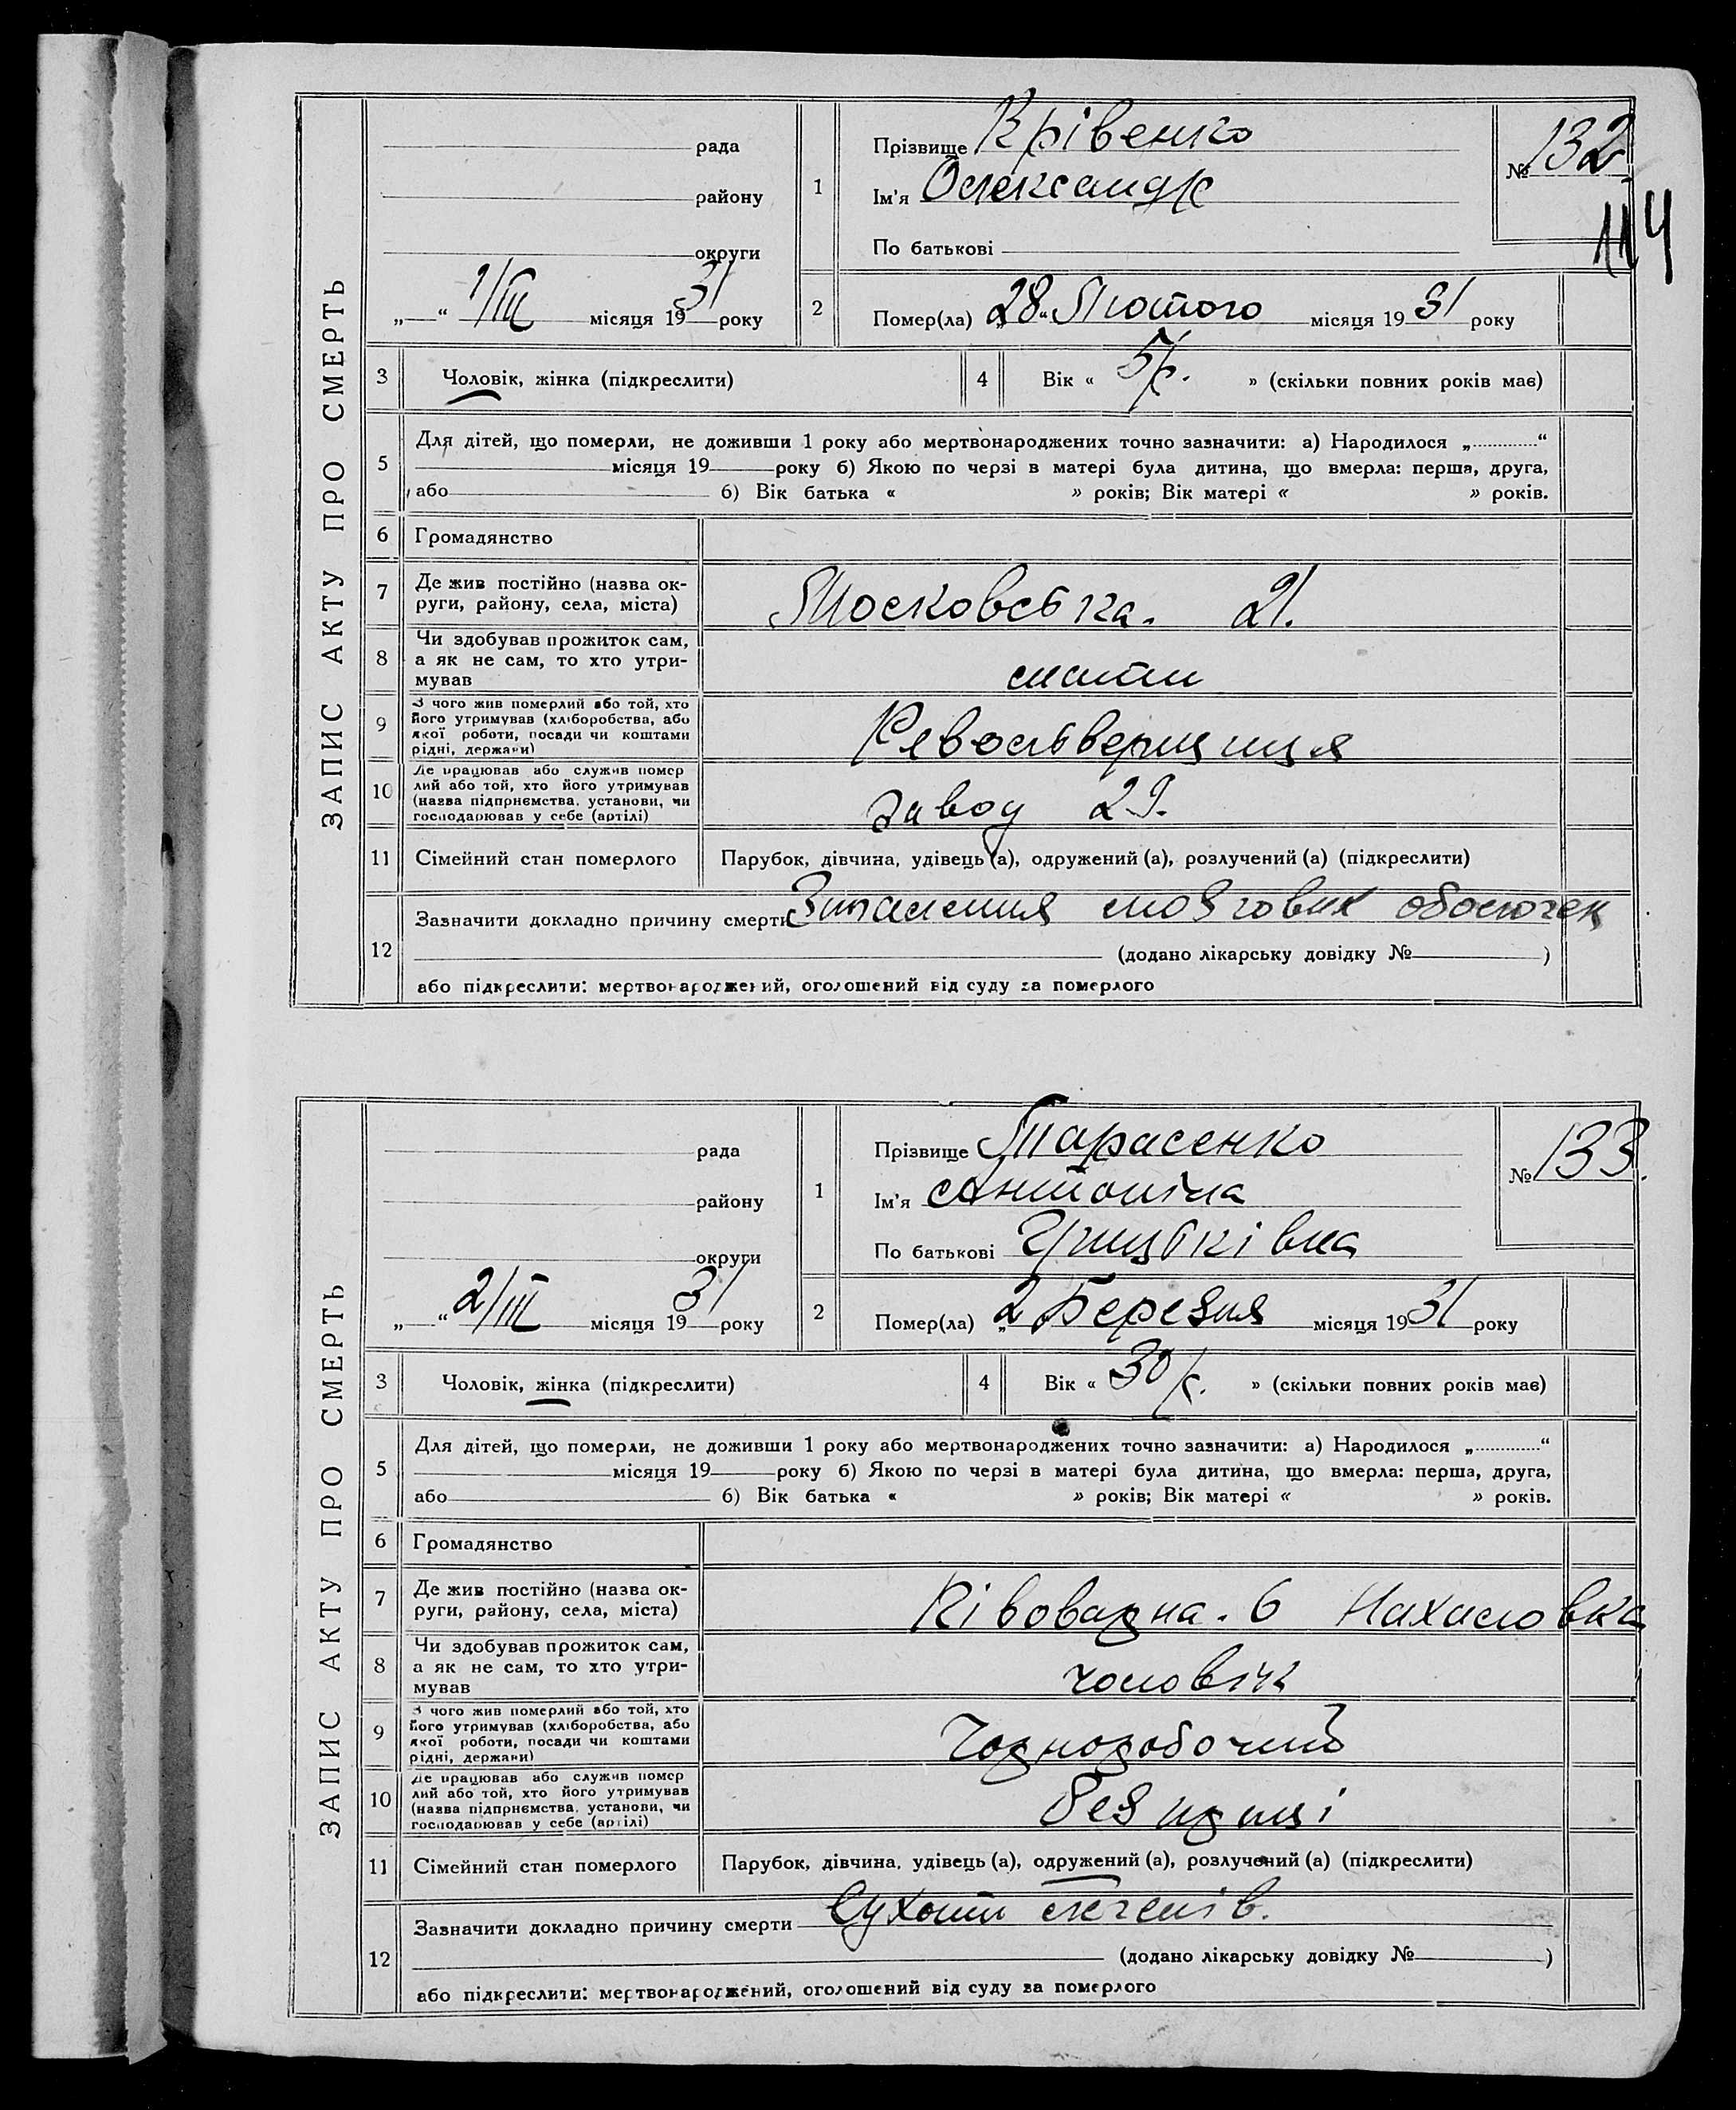 ЗАПИС АКТУ ПРО СМЕРТЬ
рада
району
округи
„ “ 1/III місяця 1931 року
1
Прізвище Крівенко
Ім'я Олександр
По батькові
№ 132
114
2 Помер(ла) „28“ Лютого місяця 1931 року
3 Чоловік, жінка (підкреслити)
4 Вік « 5/р. » (скільки повних років має)
5 Для дітей, що померли, не доживши 1 року або мертвонароджених точно зазначити: а) Народилося „ “
місяця 19 року б) Якою по черзі в матері була дитина, що вмерла: перша, друга,
або б) Вік батька « » років; Вік матері « » років.
6 Громадянство
7 Де жив постійно (назва ок-
руги, району, села, міста)
Московська. 21.
8 Чи здобував прожиток сам,
а як не сам, то хто утри-
мував
мати
9 З чого жив померлий або той, хто
його утримував (хліборобства, або
якої роботи, посади чи коштами
рідні, держави)
Револьверщиця
10 Де працював або служив помер
лий або той, хто його утримував
(назва підприємства, установи, чи
господарював у себе (артілі)
завод 29.
11 Сімейний стан померлого
Парубок, дівчина, удівець (а), одружений (а), розлучений (а) (підкреслити)
12 Зазначити докладно причину смерти Запалення мозгових оболочек
(додано лікарську довідку № )
або підкреслити: мертвонароджений, оголошений від суду за померлого
ЗАПИС АКТУ ПРО СМЕРТЬ
рада
району
округи
„ “ 2/III місяця 1931 року
1
Прізвище Тарасенко
Ім'я Антоніна
По батькові Грицьківна
№ 133.
2 Помер(ла) „2 Березня місяця 1931 року
3 Чоловік, жінка (підкреслити)
4 Вік « 30/р. » (скільки повних років має)
5 Для дітей, що померли, не доживши 1 року або мертвонароджених точно зазначити: а) Народилося „ “
місяця 19 року б) Якою по черзі в матері була дитина, що вмерла: перша, друга,
або б) Вік батька « » років; Вік матері « » років.
6 Громадянство
7 Де жив постійно (назва ок-
руги, району, села, міста)
6
8 Чи здобував прожиток сам,
а як не сам, то хто утри-
мував
чоловік
9 З чого жив померлий або той, хто
його утримував (хліборобства, або
якої роботи, посади чи коштами
рідні, держави)
Чорноробочий
10 Де працював або служив помер
лий або той, хто його утримував
(назва підприємства, установи, чи
господарював у себе (артілі)
без
11 Сімейний стан померлого
Парубок, дівчина, удівець (а), одружений (а), розлучений (а) (підкреслити)
12 Зазначити докладно причину смерти Сухоти легенів.
(додано лікарську довідку № )
або підкреслити: мертвонароджений, оголошений від суду за померлого